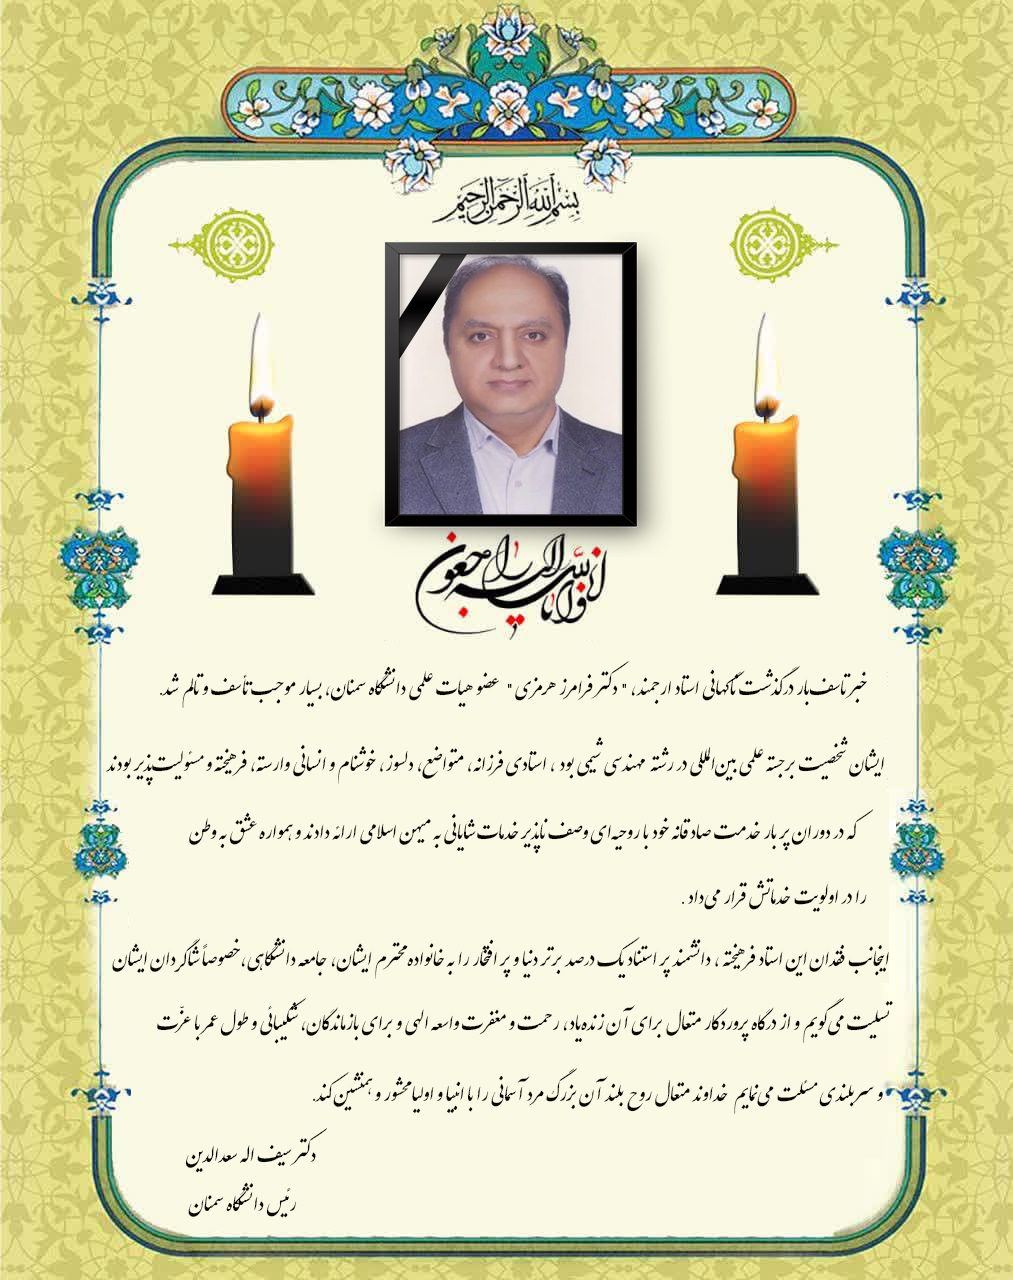 بسم الله الرحمن الرحیم
انا لله وانا الیه راجعون
خبر تاسف‌بار درگذشت ناگهانی استاد ارجمند، " دکتر فرامرز هرمزی " عضو هیات علمی دانشگاه سمنان، بسیار موجب تأسف و تالم شد.
ایشان شخصیت برجسته علمی بین‌المللی در رشته مهندسی شیمی بود ، استادی فرزانه، متواضع، دلسوز، خوشنام و انسانی وارسته، فرهیخته و مسئولیت‌پذیر بودند
که در دوران پر بار خدمت صادقانه خود با روحیه‌ای وصف ناپذیر خدمات شایانی به میهن اسلامی ارائه دادند و همواره عشق به وطن
را در اولویت خدماتش قرار می‌داد .
اینجانب فقدان این استاد فرهیخته ، دانشمند پر استناد یک درصد برتر دنیا و پر افتخار را به خانواده محترم ایشان، جامعه دانشگاهی،خصوصاً شاگردان ایشان
تسلیت می‌گویم و از درگاه پروردگار متعال برای آن زنده‌یاد، رحمت و مغفرت واسعه الهی و برای بازماندگان، شکیبائی و طول عمر با عزّت
و سربلندی مسئلت می‌نمایم خداوند متعال روح بلند آن بزرگ مرد آسمانی را با انبیا و اولیا محشور و همنشین کند.
دکتر سیف اله سعدالدین
رئیس دانشگاه سمنان